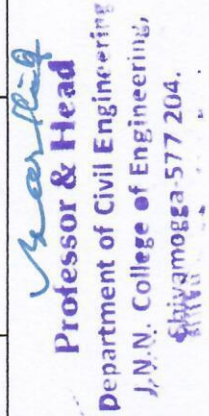 Professor & Head
Department of Civil Engineering
J.N.N. College of Engineering,
Shivamogga-577 204.